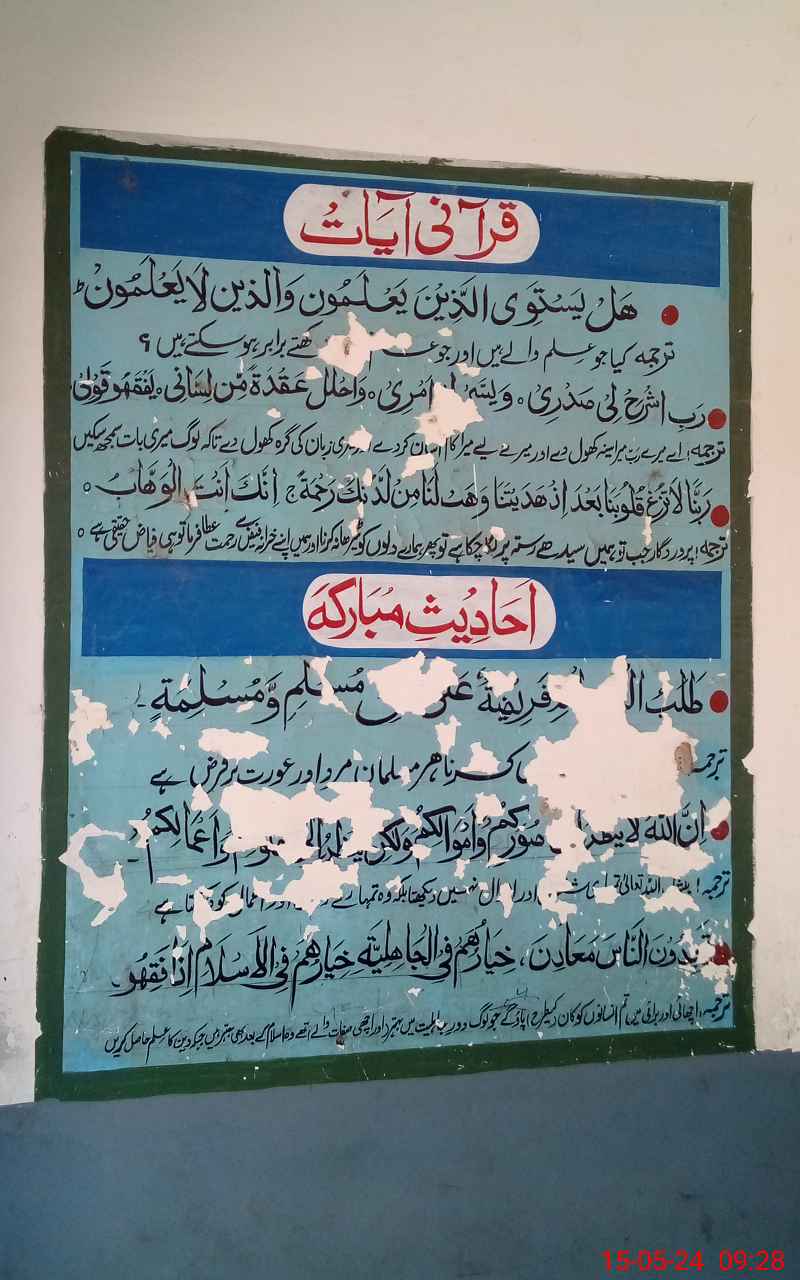 قرآنی آیات
هَلْ يَسْتَوِی الَّذِيْنَ يَعْلَمُون وَالذین لَا يَعْلَمُونْ ط
ترجمہ کیا جو عِلم والے ہیں اور جو رکھتے برابر ہو سکتے ہیں ؟
رَبِ اشْرَحْ لِیْ صَدْرِی ه وَيسِّر اَمْرِی ه وَاحْلُل عُقْدَةً مِّن لِسَّانی ه يَفْقَهُو قَوْلِی
ترجمہ! اے میرے رب میرا سینہ کھول دے اور میرے لیے میرا کام آسان کر دے اور میری زبان کی گرہ کھول دے تاکہ لوگ میری بات سمجھ سکیں
رَبَّنَا لَا تُزِغْ قُلُوبنَا بَعْدَ اِذْ هَدَيتَنَا وَهَبْ لَنَا مِن لَّدُنْكَ رَحْمَةً ج اِنَّكَ اَنْتَ الْوَهَّاب ه
ترجمہ! پروردگار جب تو ہمیں سیدھے رستہ پر چکا ہے تو پھر ہمارے دلوں کو ٹیڑھا نہ کرنا اور ہمیں اپنے خزانہ فیض سے رحمت عطا فرما تو ہی فیاض حقیقی ہے ه
اَحَادِيْثِ مُبَارکَہ
طَلَبُ فَرِيْضَةٌ مُسْلِمِ وَّمُسْلِمَةٍ ۔
کرنا ہر مسلمان مرد اور عورت پر فرض ہے
اِنَّ اللهَ لَا صُوَرِكُمْ وَاَمْوَالِكُمْ وَلٰكِن وَاَعْمَالِكُمْ
ترجمہ! اللہ تعالیٰ اور نہیں دیکھتا بلکہ وہ تمہارے اور اعمال کو ہے
النَّاسَ مَعَادِنَ، خِيَارُهُمْ فِی الْجَاهِلِيَّةِ خِيَارُهُمْ فِی الْاِسْلَام اِذَا فَقِهُو ۔
ترجمہ، اچھائی اور برائی میں تم انسانوں کو کان کیطرح پاؤ گے جو لوگ دور جاہلیت میں بہتر اور اچھی صفات والے تھے وہ اسلام کے بعد بھی بہتر ہیں جبکہ دین کا عِلم حاصل کریں
15-05-24 09:28